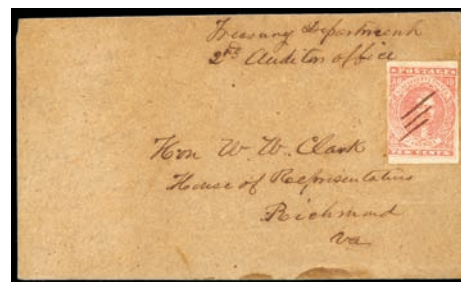 Treasury Department
2nd Auditor office
POSTAGE
TEN CENTS
Hon W. W. Clark
House of Representatives
Richmond
Va